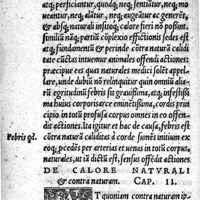 atq; perficiantur, quodq; neq; sentiatur, neq; mo
ueatur, neq; alatur, neq; augeatur ac generet,
& ab usq; nõ afficitq; calore fieri nõ possunt.
similiũ nãq; partiũ cõplexio effectionis sedes est
atq; fundamentũ & perinde cõtra naturã calidi
tate cũctas intueamur animales offendi actiones:
præcipue eas quas naturales medici solēt appel
lare, unde dubiũ non est, cũ contra naturã calidi
tas, egritudo febrilis sit grauissima, atq; infestissi
ma huius corporis arce eminētissima, cordis .s.
perinde in totũ profusa corpus omnes in eo offen
di actiones. ita igitur et hac de causa, febris est
Febris qd.
cõtra naturã caliditas à corde sumēs initium ex
eoq; ꝓcedēs per arterias et uenas in totũ corpus,
naturales, ut iã dictũ est, sensus offēdit actiones.
DE CALORE NATVRALI
& contra naturam. CAP. II.
T quoniam contra naturam ip